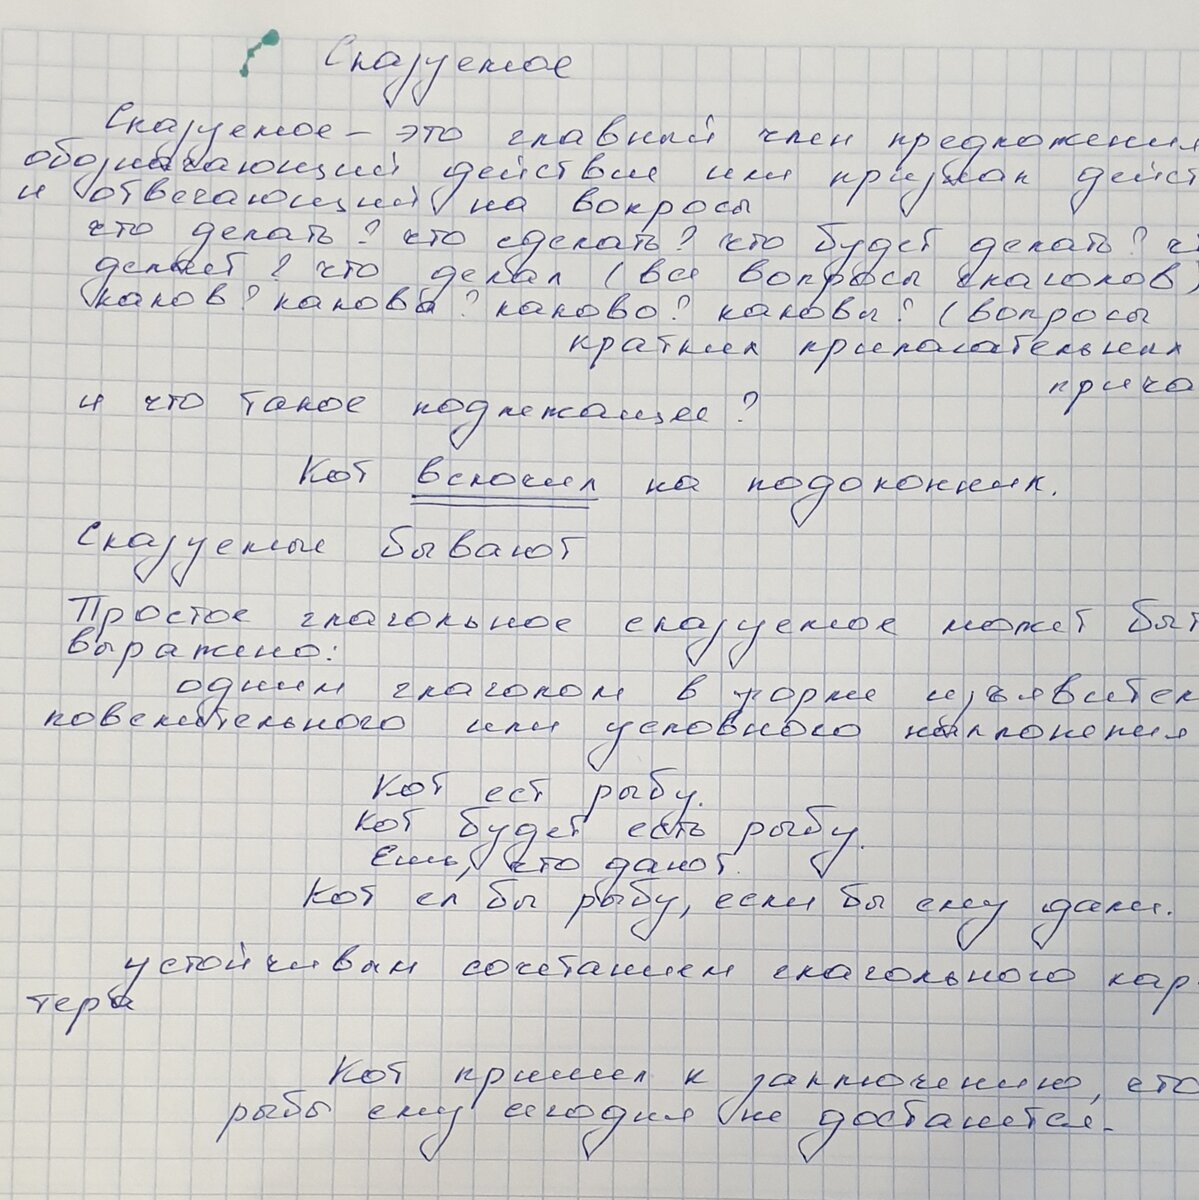 Сказуемое
Сказуемое – это главный член предложения
обозначающий действие или признак дейст
и отвечающий на вопросы
что делать? что сделать? что будет делать? чт
делает? что делал (все вопросы глаголов)
каков? какова? каково? каковы? (вопросы
кратких прилагательных
прича
и что такое подлежащее?
Кот вскочил на подоконник.
Сказуемые бывают
Простое глагольное сказуемое может быт
выражено:
одним глаголом в форме изъявител
повелительного или условного наклонения
Кот ест рыбу.
Кот будет есть рыбу.
Ешь, что дают.
Кот ел бы рыбу, если бы ему дали.
устойчивым сочетанием глагольного хар
тера
Кот пришел к заключению, что
рыбы ему сегодня не достанется.